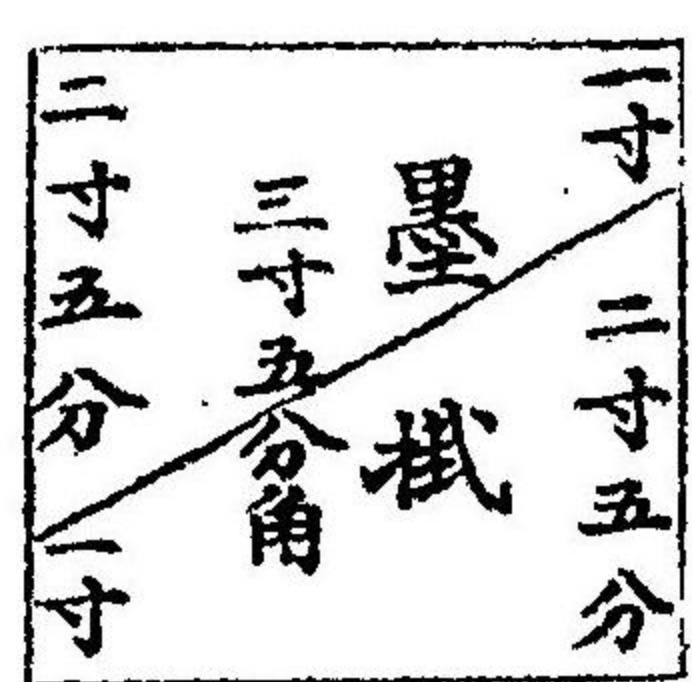 一寸
二寸五分
墨掛
三寸五分角
二寸五分
一寸